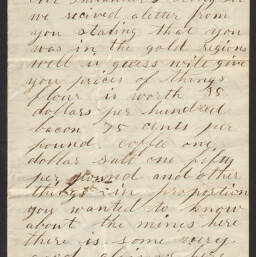 we recived aletter from
you stating that you
was in the gold regions
well i guess will give
you prices of things
flour is worth 35
dollars per hundred
bacon 75 cents per
pound. coffee one
dollar salt one fifty
per pound and other
things in proportion
you wanted to know
about the mines here
there is some very